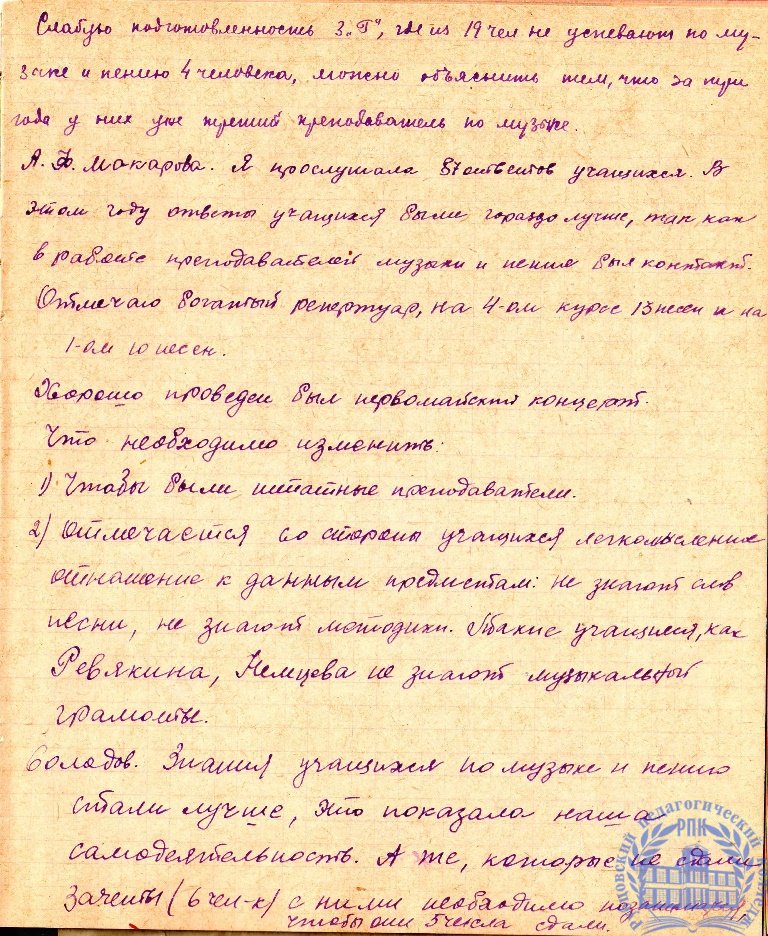 Слабую подготовленность 3 „Г", где из 19 чел не успевают по му-
зыке и пению 4 человека, можно объяснить тем, что за три
года у них уже третий преподаватель по музыке.
А. Ф. Макарова. Я прослушала 87 ответов учащихся. В
этом году ответы учащихся были гораздо лучше, так как
в работе преподавателей музыки и пения был контакт.
Отмечаю богатый репертуар, на 4-ом курсе 13 песен и на
1-ом 10 песен.
Хорошо проведен был первомайский концерт.
Что необходимо изменить:
1) Чтобы были штатные преподаватели.
2) Отмечается со стороны учащихся легкомысленное
отношение к данным предметам: не знают слов
песни, не знают методики. Такие учащиеся, как
Ревякина, Немцева не знают музыкальной
грамоты.
Солодов. Знания учащихся по музыке и пению
стали лучше, это показала наша
самодеятельность. А те, которые не сдали
зачеты (6 чел-к) с ними необходимо позаниматься,
чтобы они 5 числа сдали.
Ртищевский педагогический
РПК